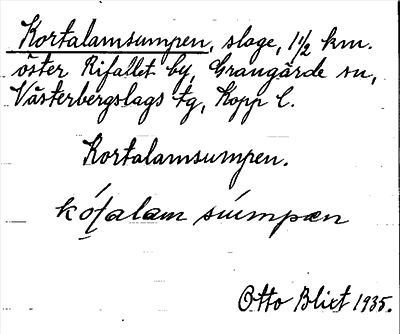 Kortalamsumpen, slage, 1 1/2 km.
öster Rifallet by, Grangärde sn,
Västerbergslags tg, Kopp l.
Kortalamsumpen.
súmpæn
Otto Blixt 1935.